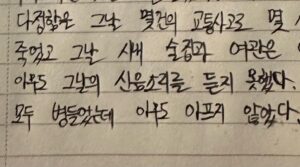 다정함은 그날 몇건의 교통사고로 몇
죽었고 그날 시내 술집과 여관은
아무도 그날의 신음소리를 듣지 못했다.
모두 병들었는데 아무도 아프지 않았다.